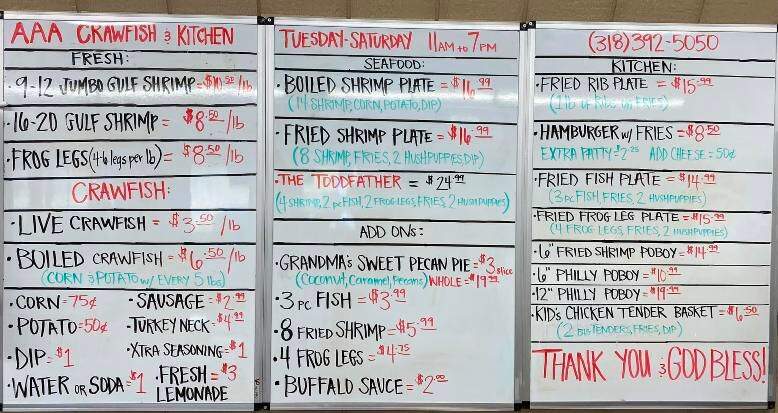 AAA CRAWFISH & KITCHEN
FRESH:
• 9-12 JUMBO GULF SHRIMP = $10.50/lb
• 16-20 GULF SHRIMP = $8.50/lb
• FROG LEGS (4-6 legs per lb) = $8.50/lb
CRAWFISH:
• LIVE CRAWFISH = $3.50/lb
• BOILED CRAWFISH = $6.50/lb
(CORN & POTATO w/ EVERY 5 lbs)
• CORN = 75¢ • SAUSAGE = $2.99
• POTATO = 50¢ • TURKEY NECK = $4.99
• DIP = $1 • XTRA SEASONING = $1
• WATER OR SODA = $1 • FRESH LEMONADE = $3
TUESDAY-SATURDAY 11AM TO 7PM
SEAFOOD:
• BOILED SHRIMP PLATE = $16.99
(14 SHRIMP, CORN, POTATO, DIP)
• FRIED SHRIMP PLATE = $16.99
(8 SHRIMP, FRIES, 2 HUSHPUPPIES, DIP)
• THE TODDFATHER = $24.99
(4 SHRIMP, 2 pc FISH, 2 FROG LEGS, FRIES, 2 HUSHPUPPIES)
ADD ONs:
• GRANDMA'S SWEET PECAN PIE = $3 slice
(Coconut, Caramel, Pecans) WHOLE = $19.99
• 3 PC FISH = $3.99
• 8 FRIED SHRIMP = $5.99
• 4 FROG LEGS = $4.75
• BUFFALO SAUCE = $2.00
(318)392-5050
KITCHEN:
• FRIED RIB PLATE = $15.99
(1 lb OF RIBS w/ FRIES)
• HAMBURGER w/ FRIES = $8.50
EXTRA PATTY = $2.25 ADD CHEESE = 50¢
• FRIED FISH PLATE = $14.99
(3 pc FISH, FRIES, 2 HUSHPUPPIES)
• FRIED FROG LEG PLATE = $15.99
(4 FROG LEGS, FRIES, 2 HUSHPUPPIES)
• 6" FRIED SHRIMP POBOY = $14.99
• 6" PHILLY POBOY = $10.99
• 12" PHILLY POBOY = $19.99
• KID'S CHICKEN TENDER BASKET = $6.50
(2 BIG TENDERS, FRIES, DIP)
THANK YOU & GOD BLESS!